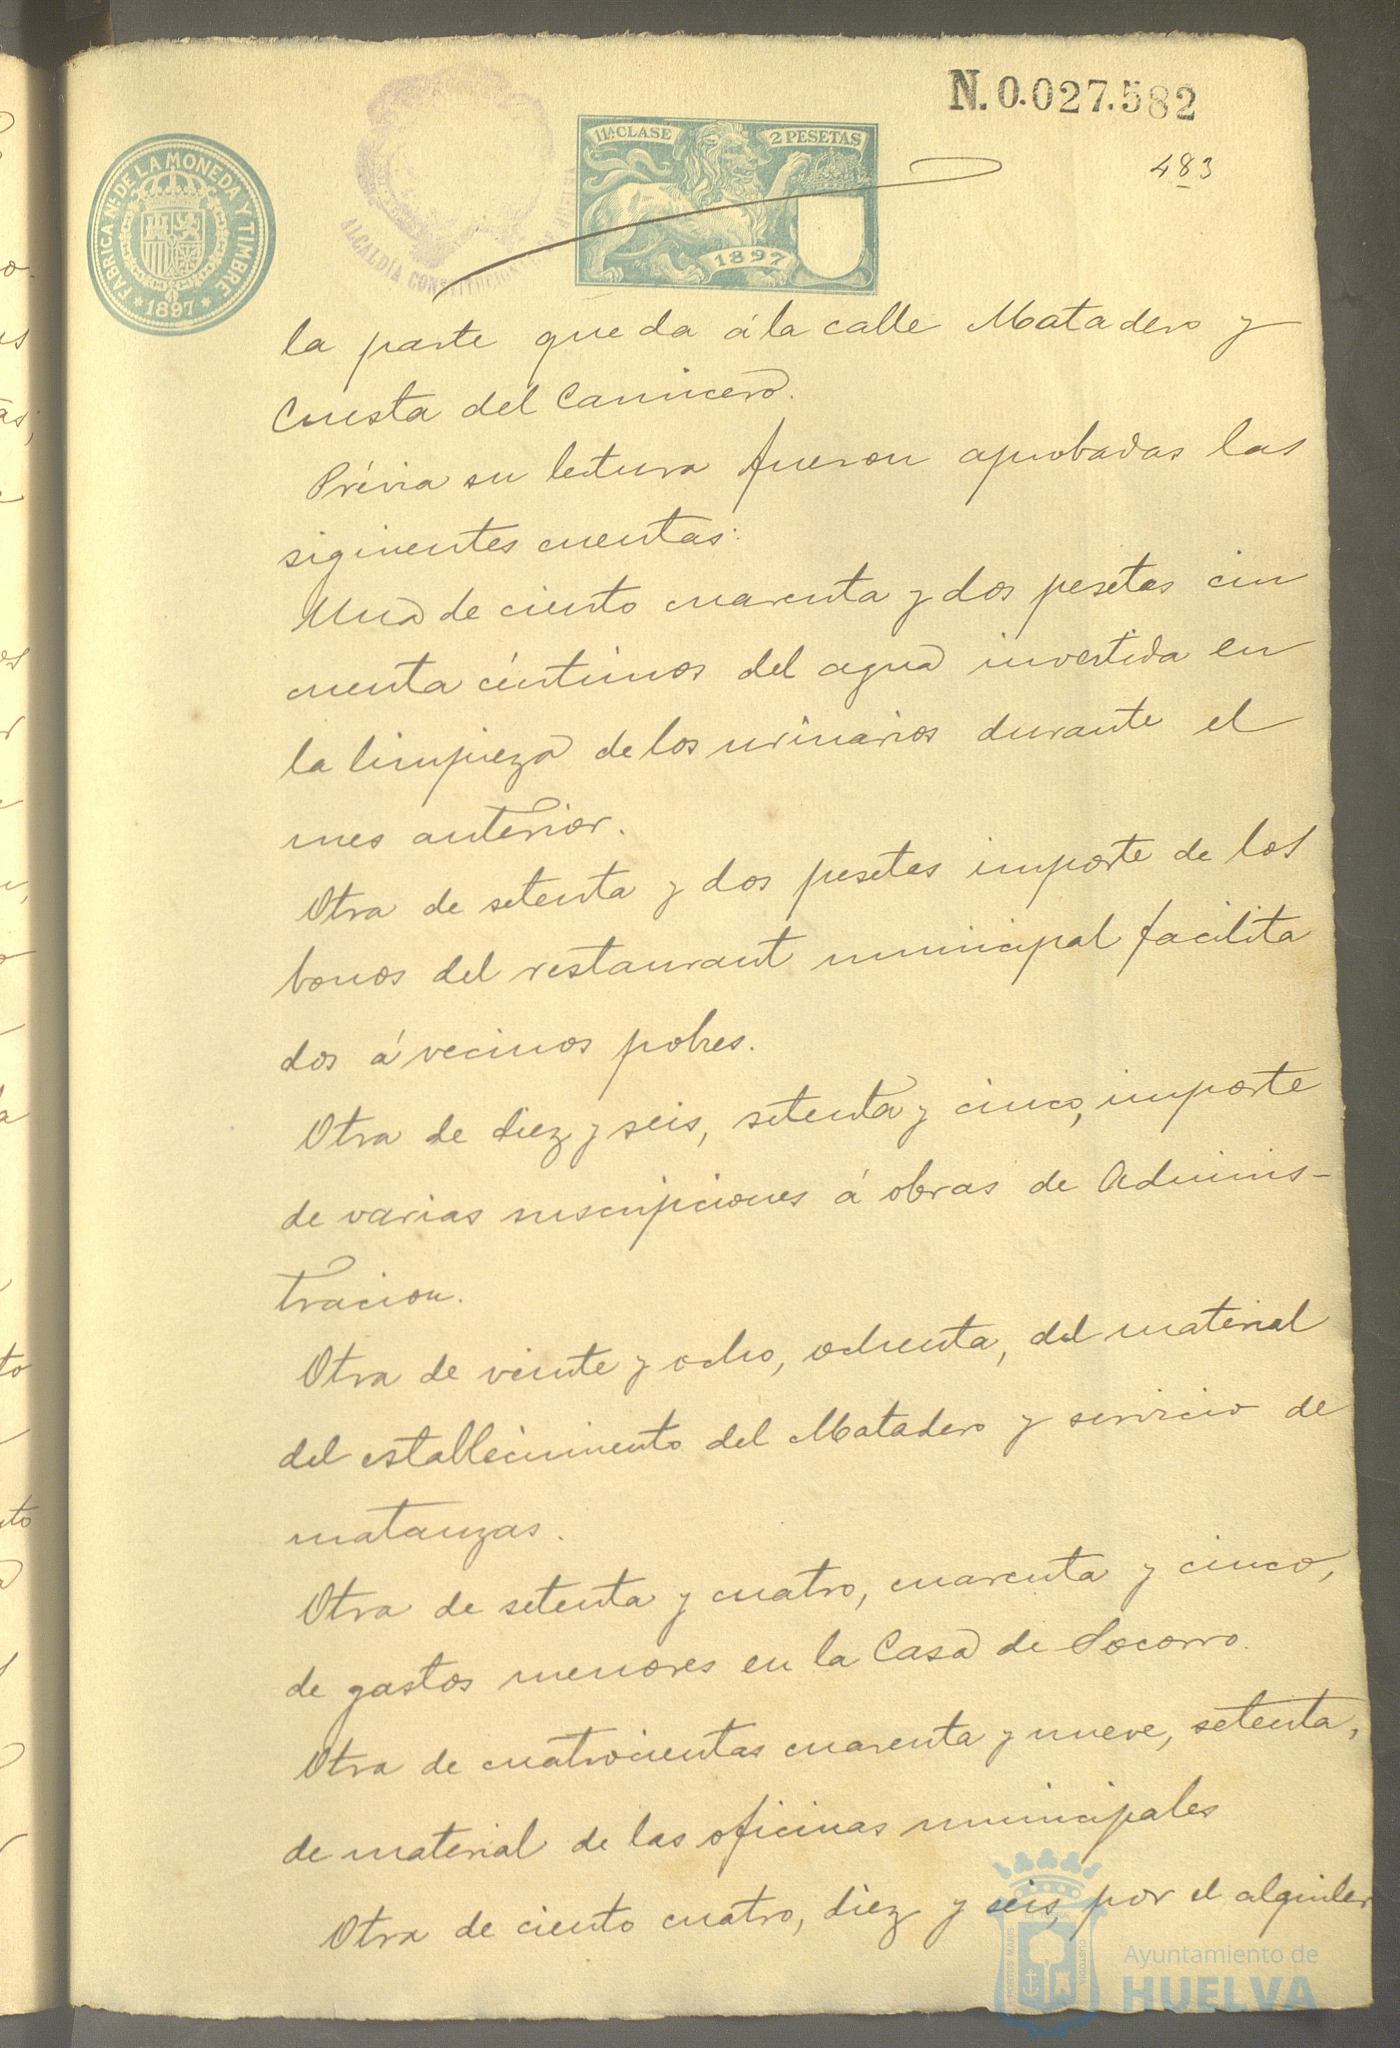 N. 0.027.582
483
FABRICA Nal. DE LA MONEDA Y TIMBRE
* 1897 *
ALCALDÍA CONSTITUCION
11ª CLASE
2 PESETAS
1897
la parte que da á la calle Matadero y
Cuesta del Carnicero.
Prévia su lectura fueron aprobadas las
siguientes cuentas:
Una de ciento cuarenta y dos pesetas cin
cuenta céntimos del agua invertida en
la limpieza de los urinarios durante el
mes anterior.
Otra de setenta y dos pesetas importe de los
bonos del restaurant municipal facilita
dos á vecinos pobres.
Otra de diez y seis, setenta y cinco, importe
de varias suscripciones á obras de Adminis-
tracion.
Otra de veinte y ocho, ochenta, del material
del establecimiento del Matadero y servicio de
matanzas.
Otra de setenta y cuatro, cuarenta y cinco,
de gastos menores en la Casa de Socorro.
Otra de cuatrocientas cuarenta y nueve, setenta,
de material de las oficinas municipales
Otra de ciento cuatro, diez y seis, por el alquiler
Ayuntamiento de
HUELVA